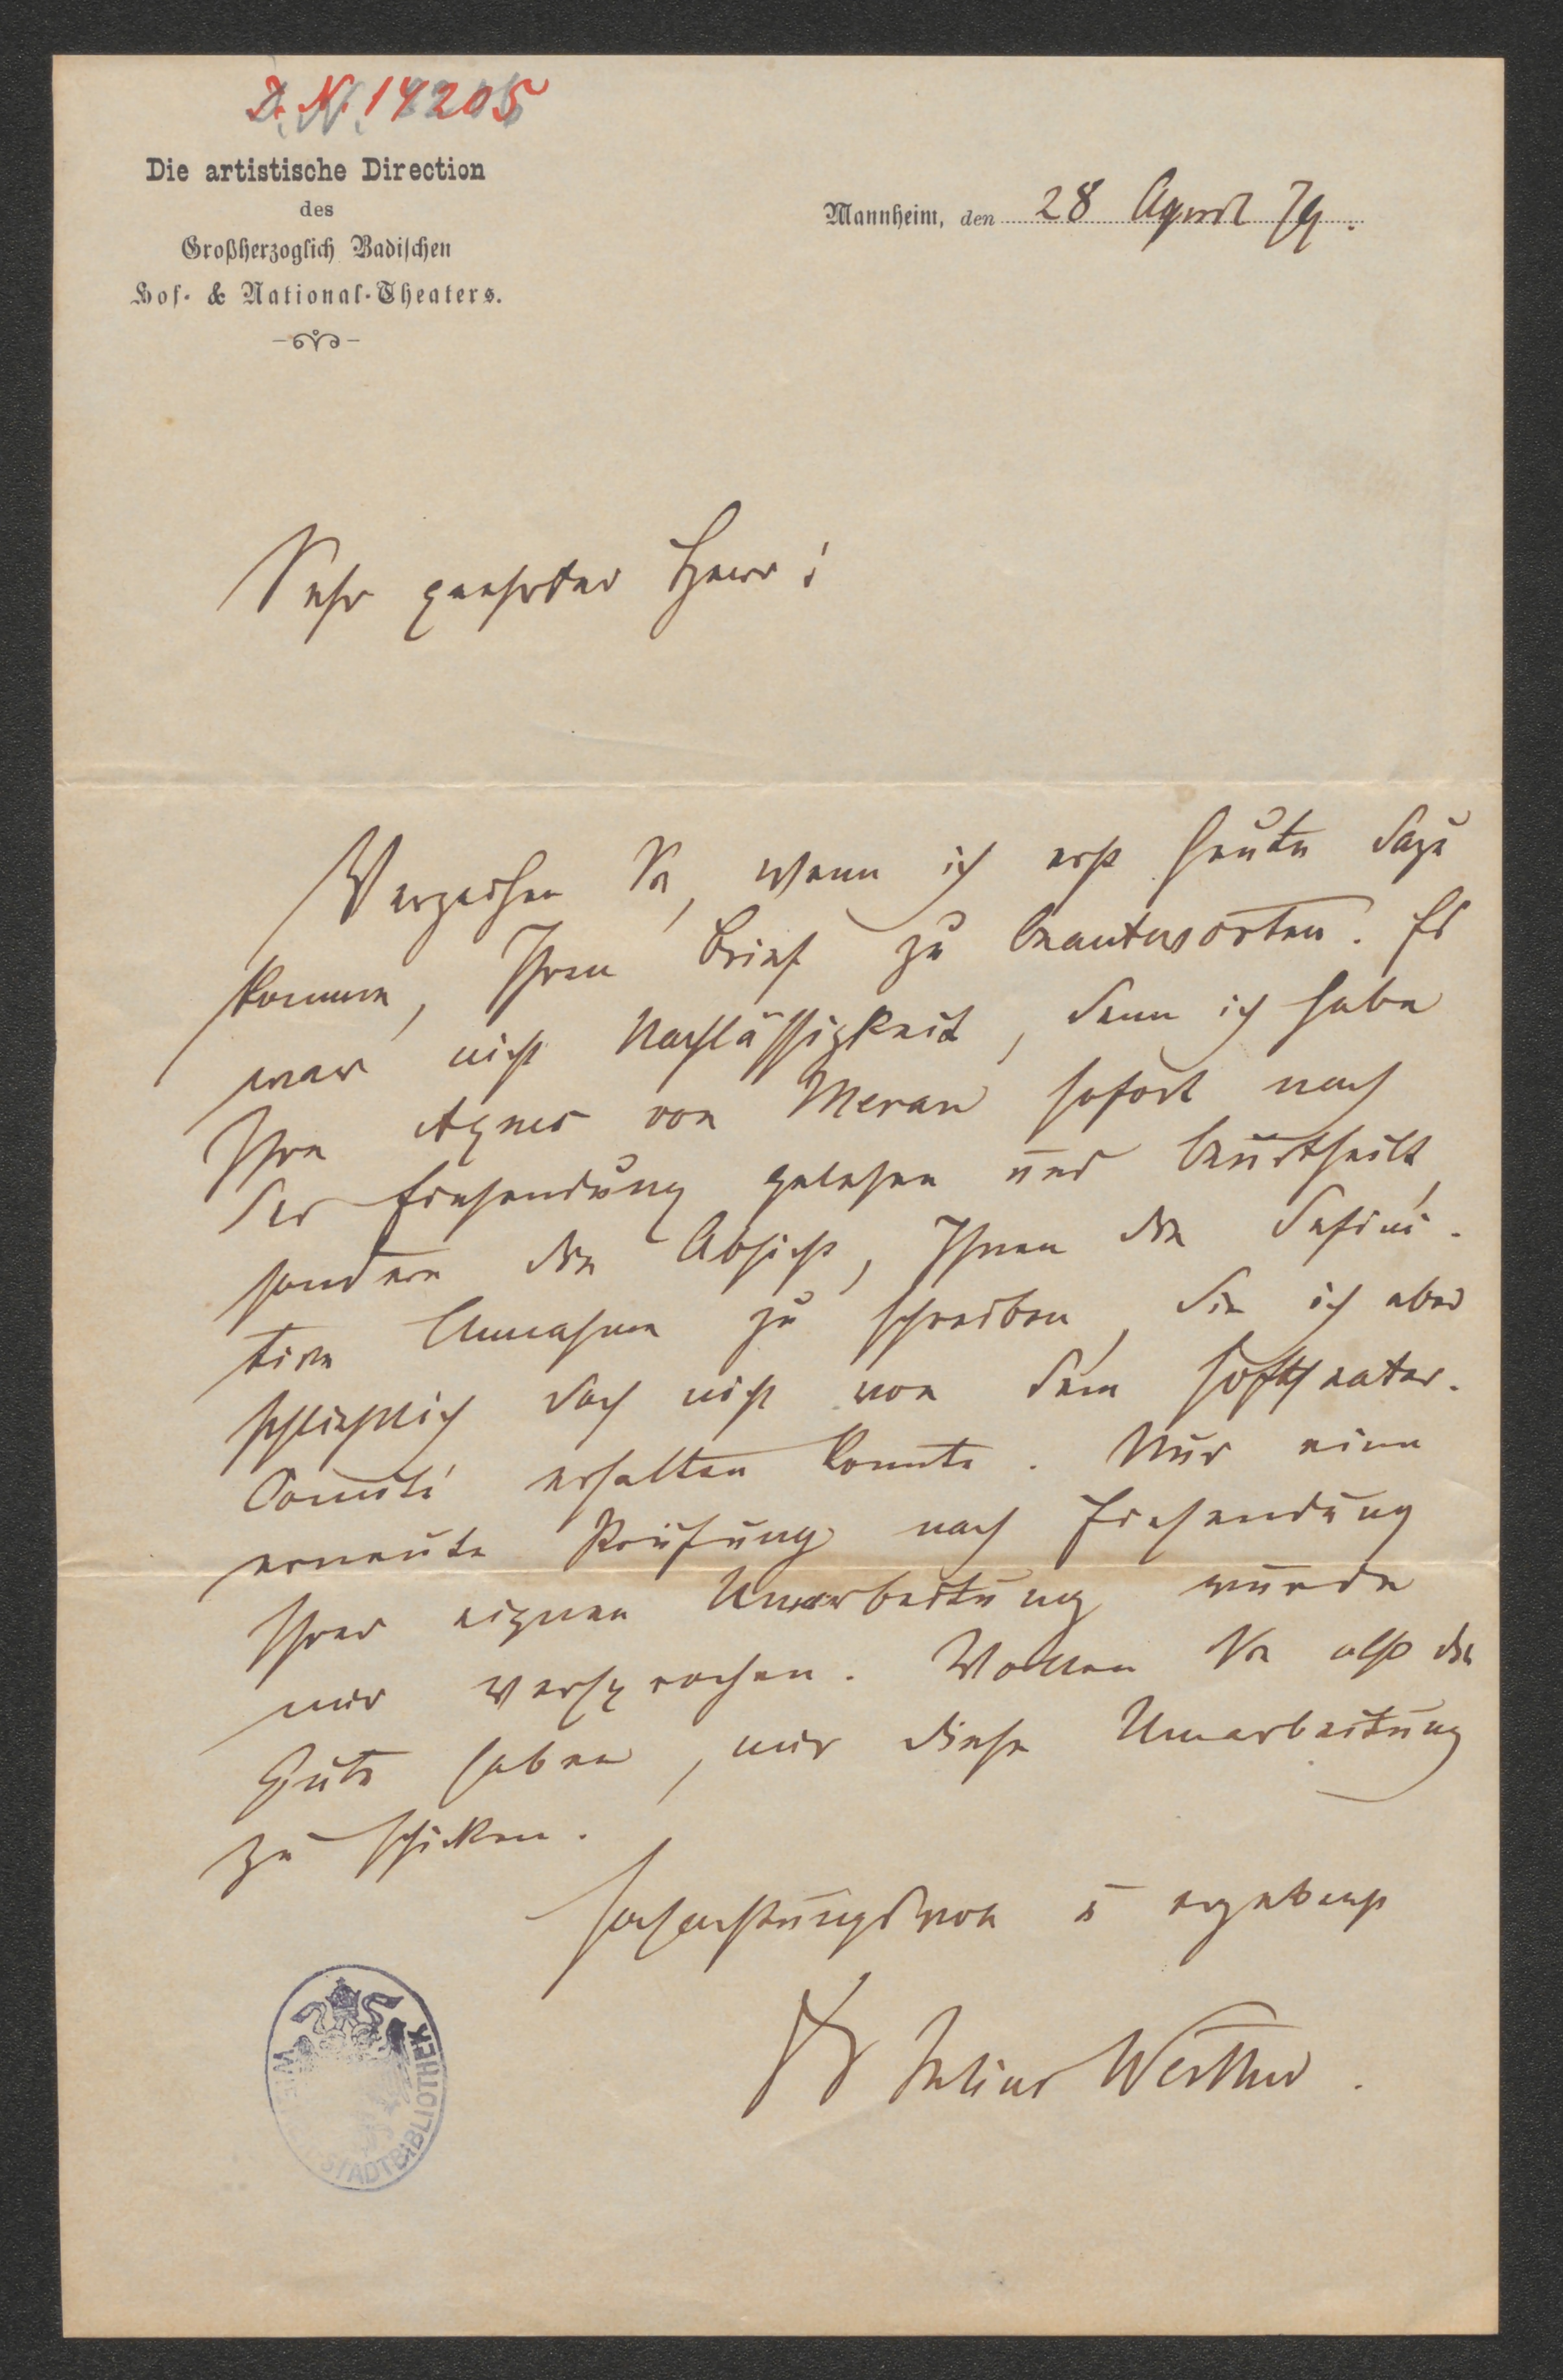 J. N. 14205
Die artistische Direction
des
Großherzoglich Badischen
Hof- & National-Theaters.
Mannheim, den 28 August 79.
Sehr geehrter Herr!
Verzeihen Sie, wenn ich erst heute dazu
komme, Ihren Brief zu beantworten. Es
war nicht Nachlässigkeit, denn ich habe
Ihre Agnes von Meran sofort nach
der Einsendung gelesen und beurtheilt,
sondern die Absicht, Ihnen die defini-
tive Annahme zu schreiben, die ich aber
schließlich doch nicht von dem Hoftheater-
Comité erhalten konnte. Nur eine
erneute Prüfung nach Einsendung
Ihrer eignen Umarbeitung wurde
mir versprochen. Wollen Sie also die
Güte haben, mir diese Umarbeitung
zu schicken.
Hochachtungsvoll u ergebenst
Dr Julius Werther.
STADTBIBLIOTHEK